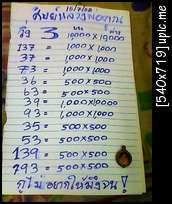 15/7/60
วิ่ง 3 = 10,000 × 10,000
137 = 1000 × 1000
37 = 1000 × 1000
73 = 1000 × 1000
36 = 500 × 500
63 = 500 × 500
39 = 1,000 × 1000
93 = 1,000 × 1000
35 = 500 × 500
53 = 500 × 500
139 = 500 × 500
293 = 500 × 500
กูไม่อยากให้มึงจน!
[540x719] upic.me